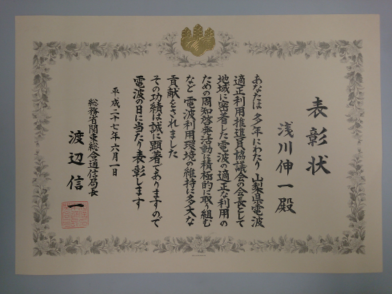 表彰状
浅川伸一殿
あなたは 多年にわたり 山梨県電波
適正利用推進員協議会の会長として
地域に密着した電波の適正な利用の
ための周知啓発活動に積極的に取り組む
など 電波利用環境の維持に多大な
貢献をされました
その功績は誠に顕著でありますので
電波の日に当たり表彰します
平成二十七年六月一日
総務省関東総合通信局長
渡辺信一